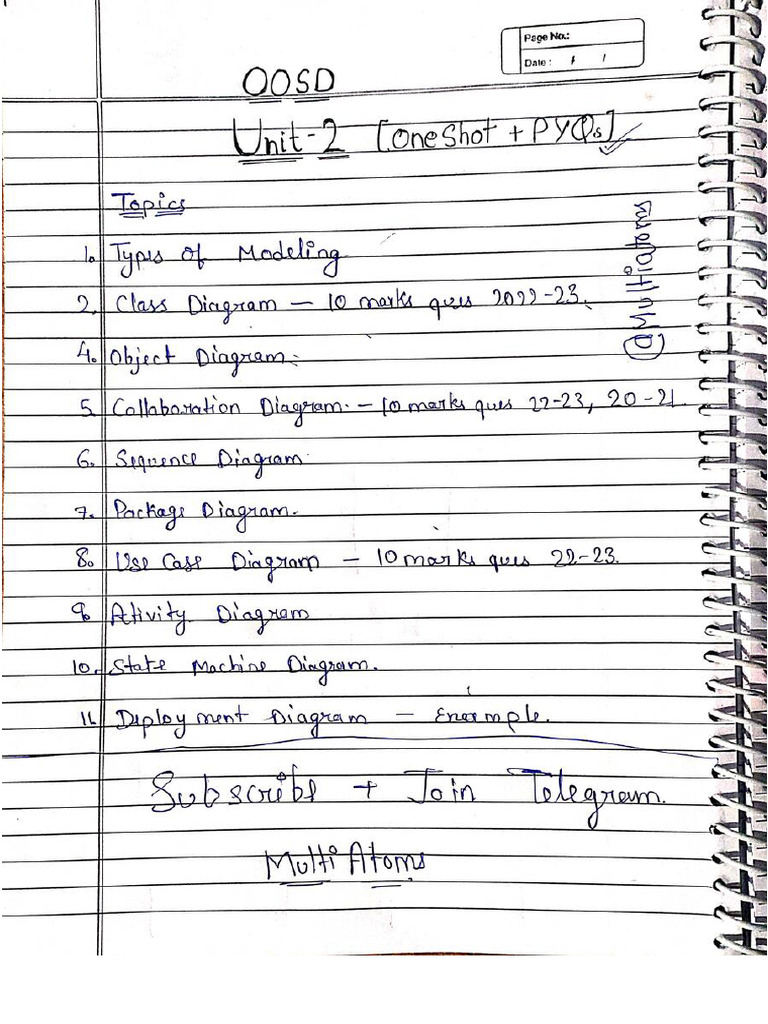 Page No.:
Date : / /
OOSD
Unit-2 [One Shot + PYQs]
Topics
1. Types of Modeling
2. Class Diagram — 10 marks ques 2022-23.
4. Object Diagram.
5. Collaboration Diagram. — 10 marks ques 22-23, 20-21.
6. Sequence Diagram
7. Package Diagram.
8. Use Case Diagram — 10 marks ques 22-23.
9. Ativity Diagram
10. State Machine Diagram.
11. Deployment Diagram — Enermple.
Subscribe + Join Telegram.
Multi Atoms
@Multiatoms